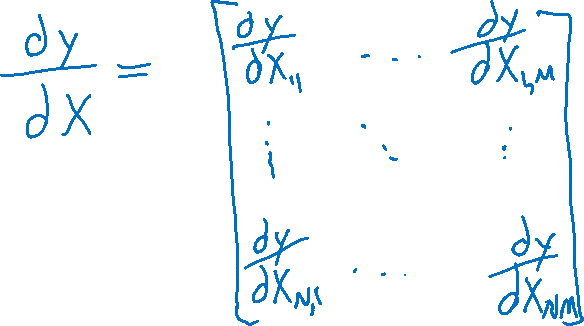 dy/dX = [ dy/dX₁₁ ... dy/dX₁,M
⋮ ⋱ ⋮
dy/dX_N,1 ... dy/dX_NM ]